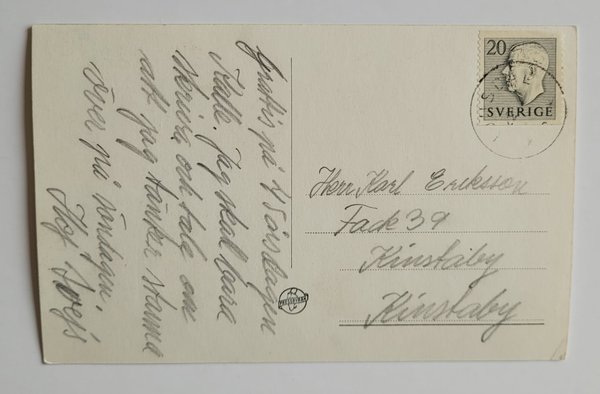 Grattis på 45 årsdagen
Kalle. Jag skal bara
skriva och tale om
att jag tänker stanna
över på söndagen.
Hej Svejs
20
SVERIGE
Herr Karl Eriksson
Fack 39
Kinstaby
Kinstaby